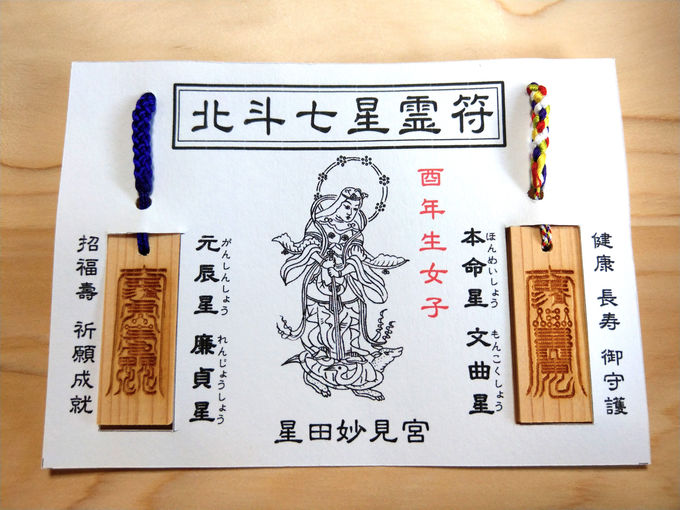 北斗七星霊符
酉年生女子
健康 長寿 御守護
本命星 文曲星
ほんめいしょう もんこくしょう
元辰星 廉貞星
がんしんしょう れんじょうしょう
招福壽 祈願成就
星田妙見宮